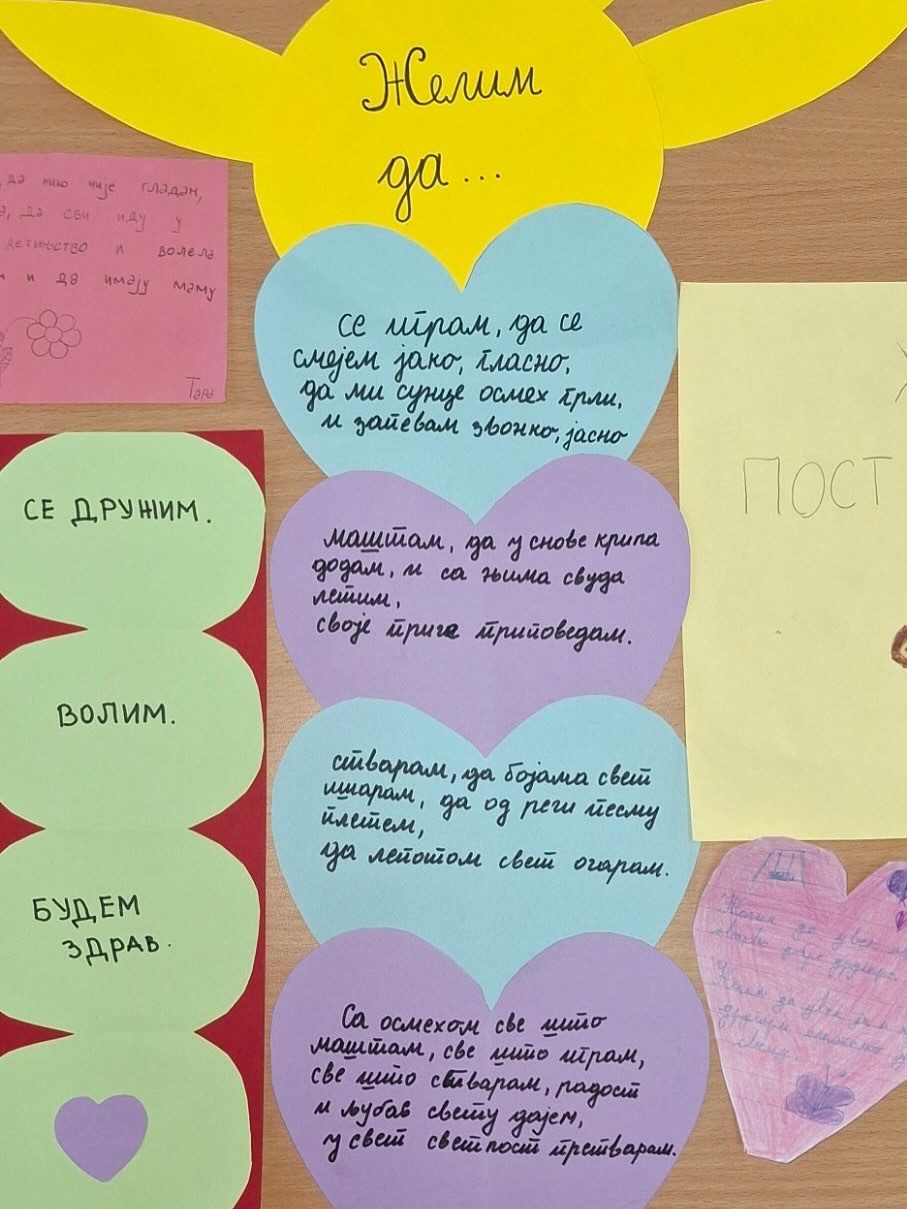 Желим
да...
се играм, да се
смејем јако, гласно,
да ми сунце осмех грли,
и запевам звонко, јасно
маштам, да у снове крила
додам, и са њима свуда
летим,
своје приче приповедам.
стварам, да бојама свет
шарам, да од речи песму
плетем,
да лепотом свет очарам.
Са осмехом све што
маштам, све што играм,
све што стварам, радост
и љубав свету дајем,
у свет светлост претварам.
да нико није гладан,
да сви иду у
детињство и волела
и да имају маму
Тара
СЕ ДРУЖИМ.
ВОЛИМ.
БУДЕМ
ЗДРАВ.
ПОСТ
Желим да увек
Желим да увек